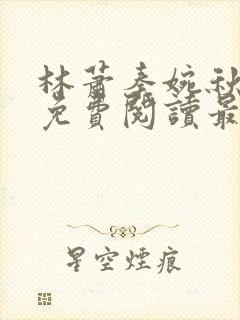 林蕭秦婉秋
免費閱讀最
星空煙痕